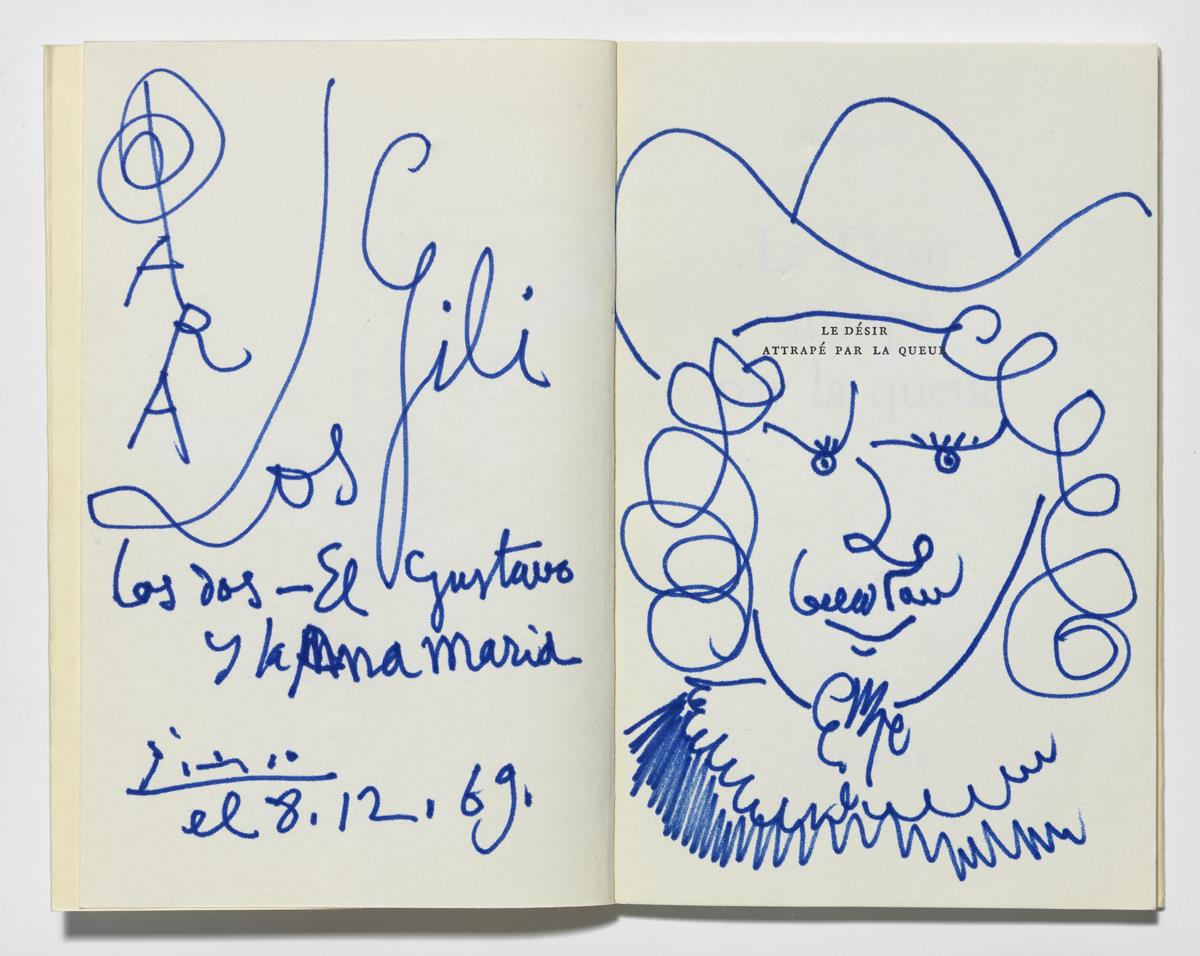 PARA
Los Gili
Los dos – El Gustavo
y la Ana Maria
Picasso
el 8.12.69.
LE DÉSIR
ATTRAPÉ PAR LA QUEUE